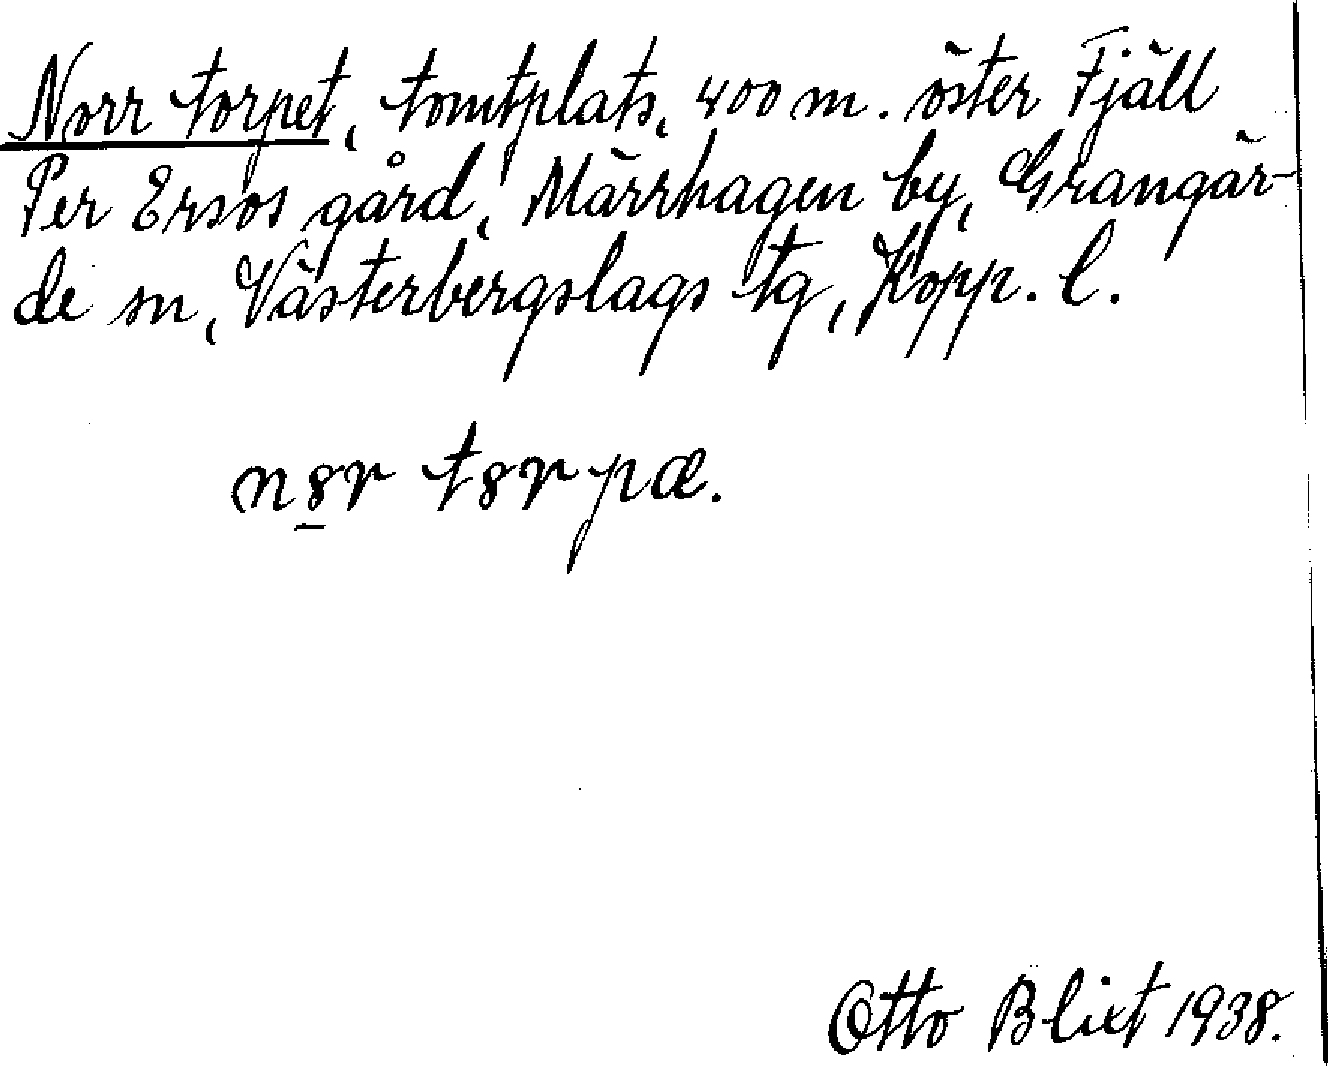 Norr torpet, tomtplats, 400 m. öster Fjäll
Per Ersos gård, Märrhagen by, Grangär-
de sn, Västerbergslags tg, Kopp. l.
n8r t8rpæ.
Otto Blixt 1938.